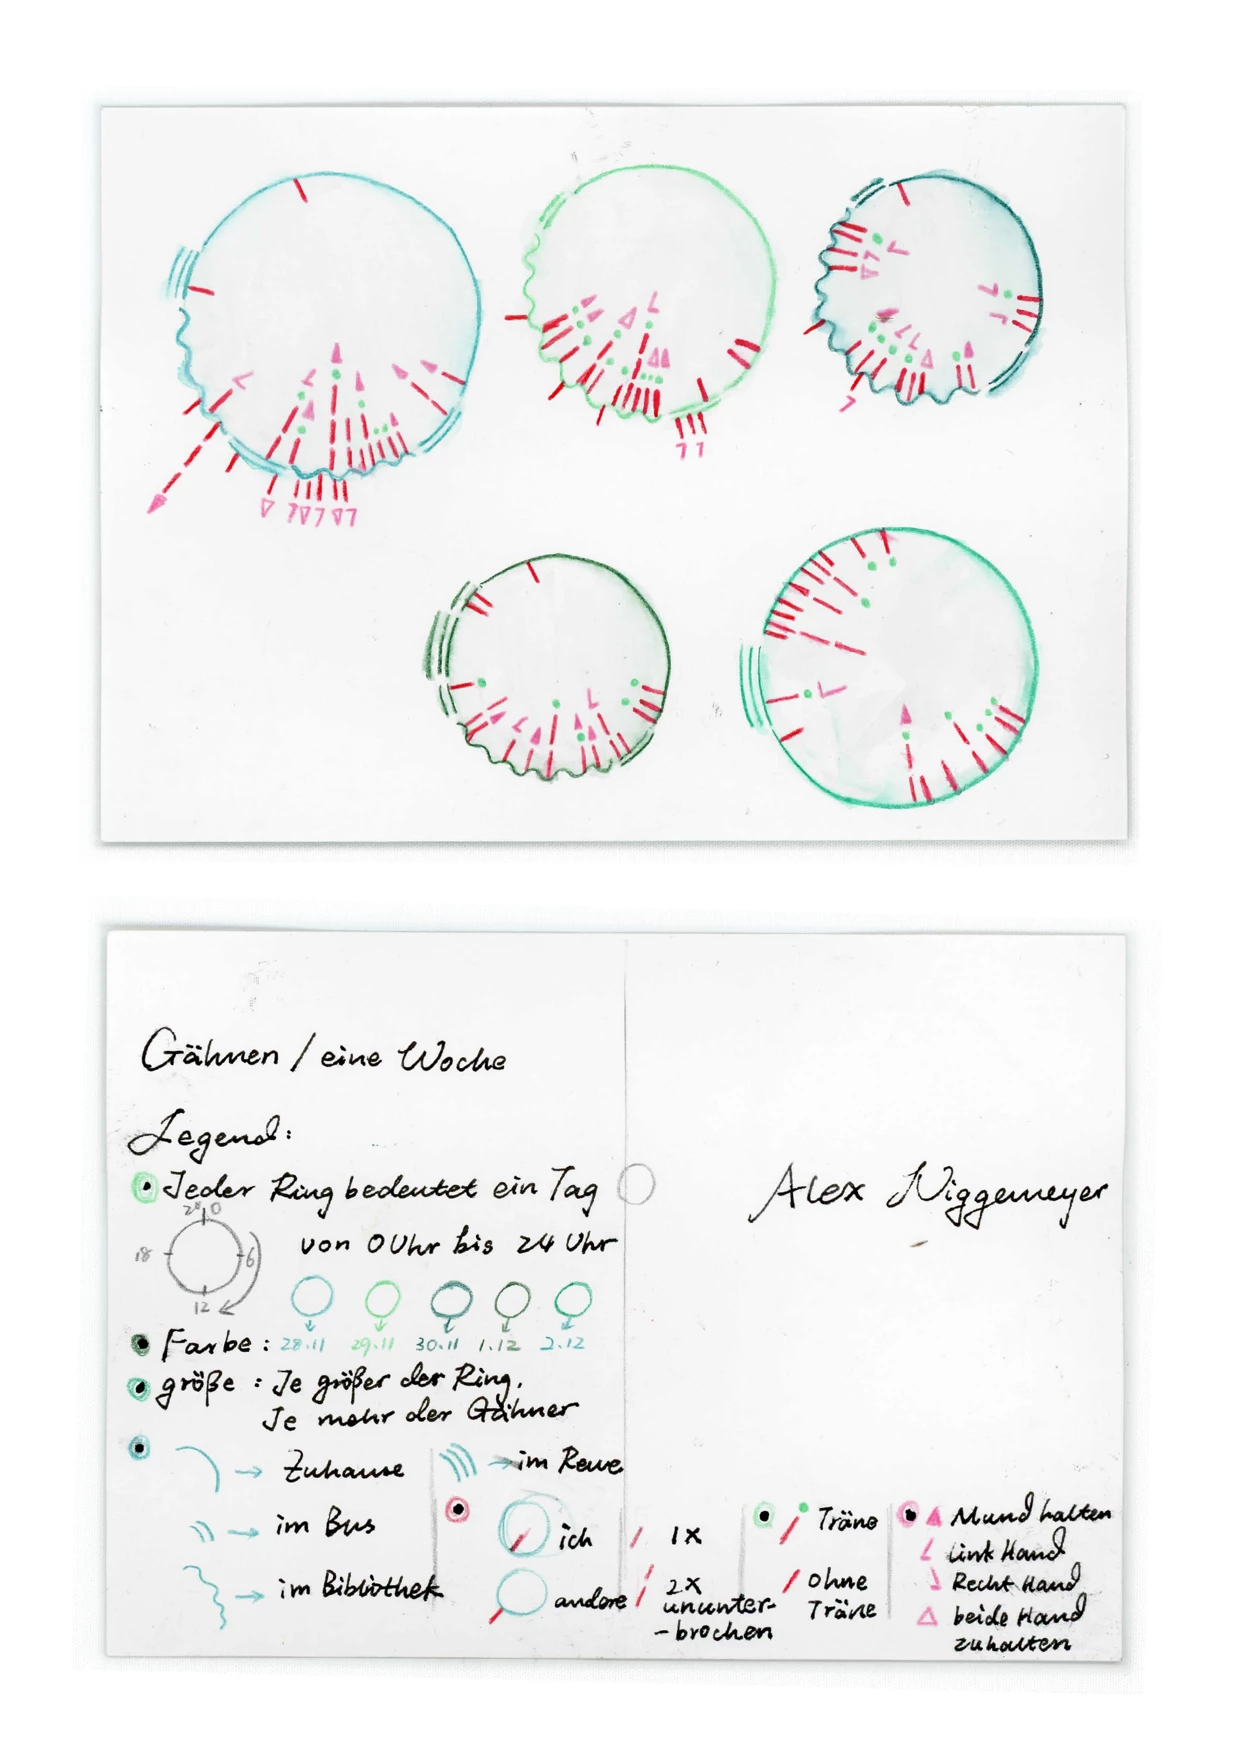 Gähnen / eine Woche
Legend:
Jeder Ring bedeutet ein Tag
24 0
18
6
12
von 0 Uhr bis 24 Uhr
Farbe: 28.11 29.11 30.11 1.12 2.12
größe: Je größer der Ring,
Je mehr der Gähner
Zuhause
im Bus
im Bibliothek
im Rewe
ich
andere
1x
2x
ununter-
-brochen
Träne
ohne
Träne
Mund halten
Link Hand
Recht Hand
beide Hand
zuhalten
Alex Niggemeyer